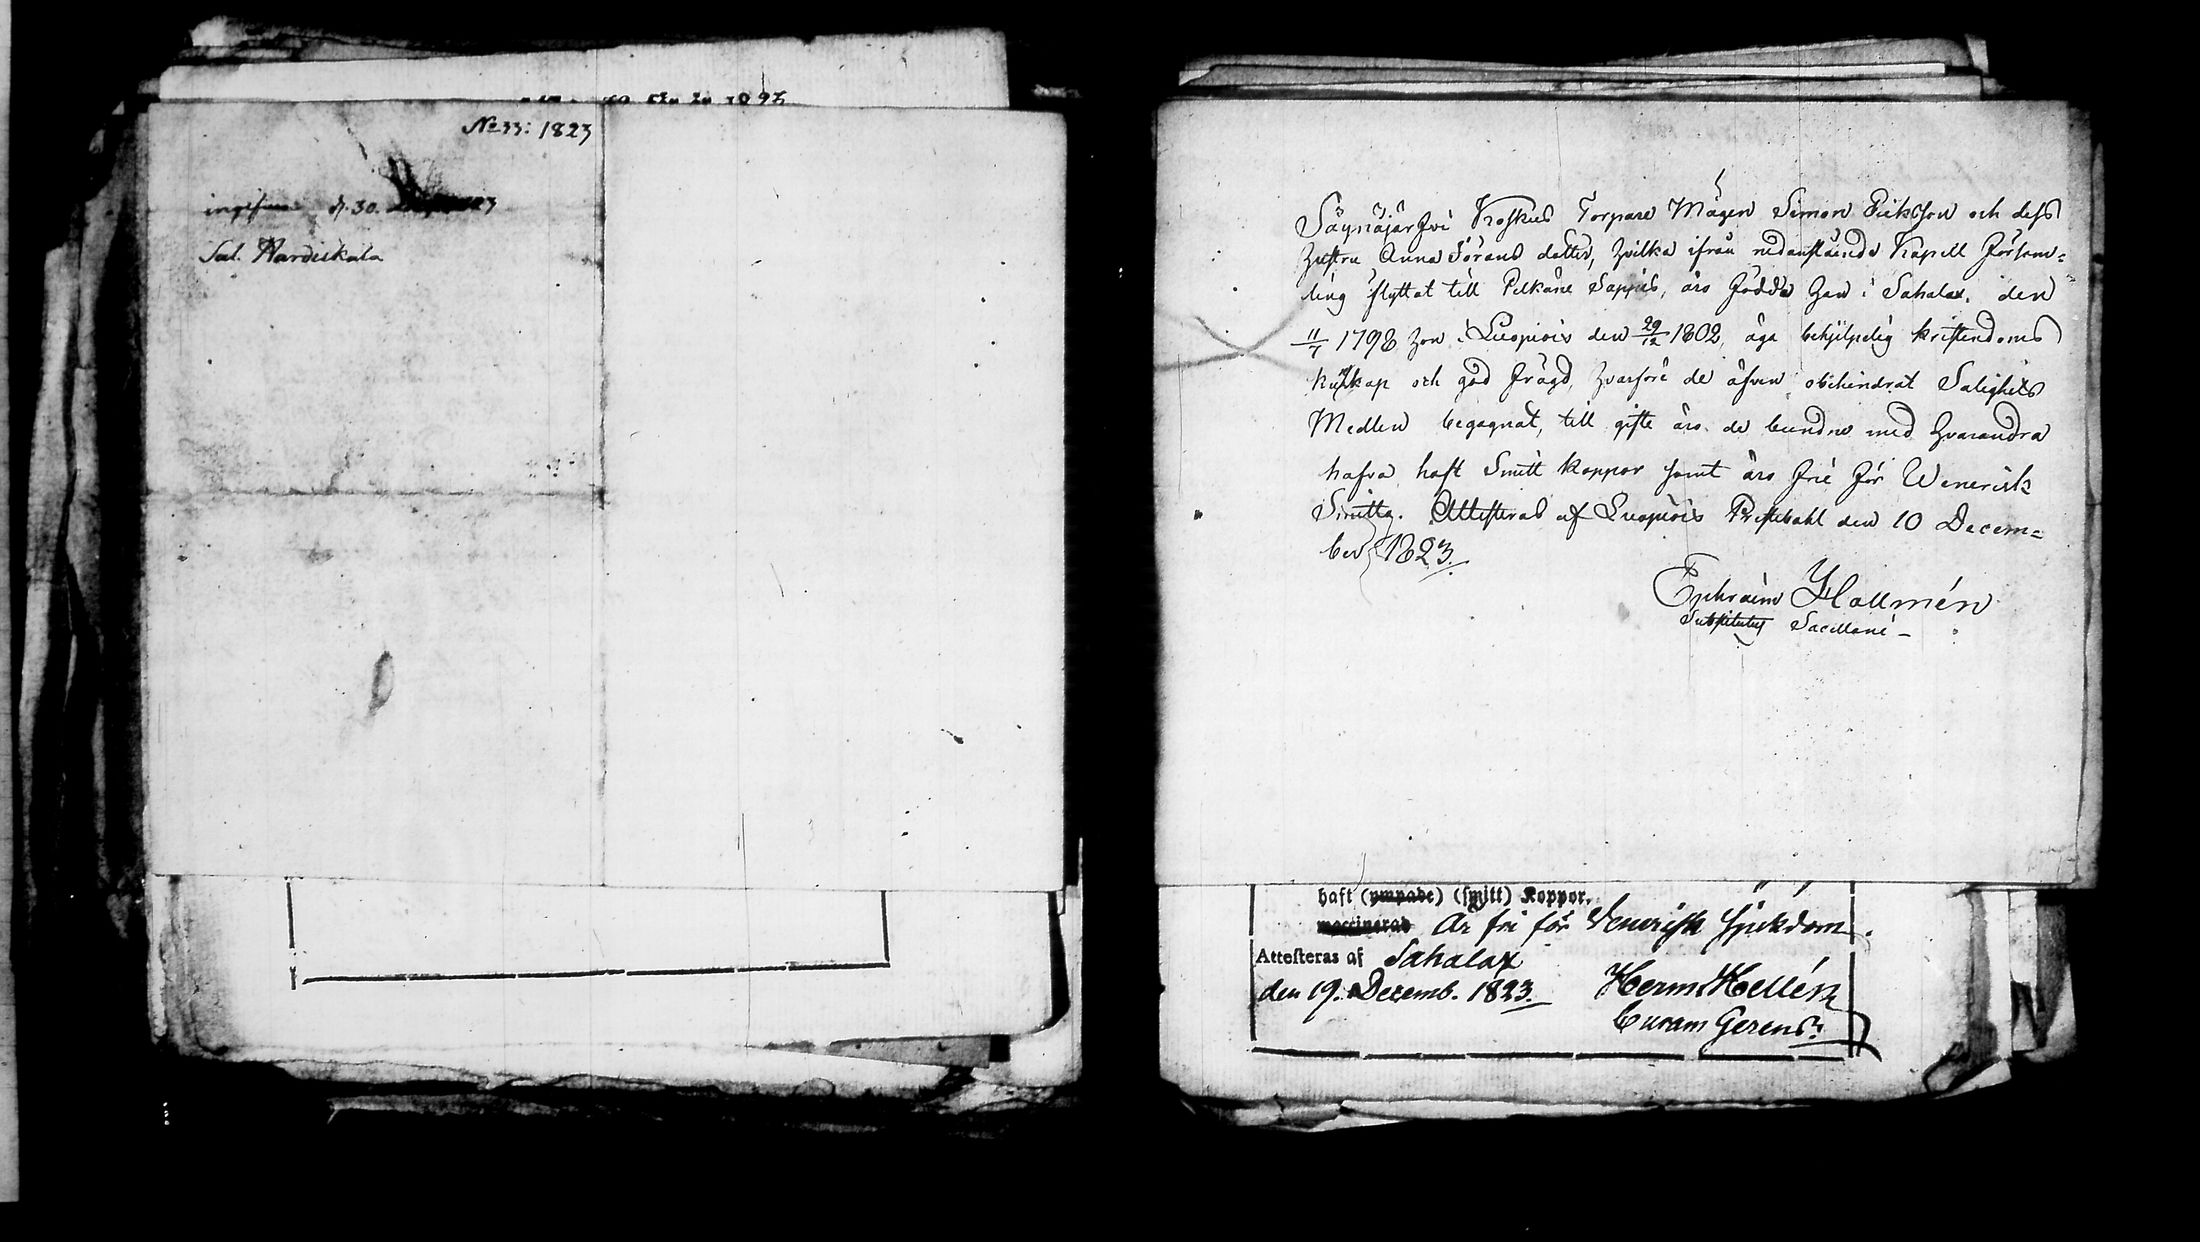 No 33: 1823
d. 30.
Sal. Hardiskala
Säynäjärfvi Koskus Torpare Mågen Simon Eriksson och dess
Hustru Anna Jörans dotter, hvilka ifrån nedanstående Kapell Försam=
ling flyttat till Pelkäne Sappus, äro födde han i Sahalax den
11/7 1798 hon i Luopiois den 29/12 1802, äga behjelpelig kristendoms
kunskap och god frägd, hvarföre de äfven obehindrat Salighets
Medlen begagnat, till gifte äro de bundne med hvarandra
hafva haft Smitt koppor samt äro frie för Wenerisk
Smitta. Attesteras af Luopiois Prestebohl den 10 Decem=
ber 1823.
Ephraim Hallmén
Substitutus Sacellani
haft (ympade) (smitt) Koppor.
vaccinerad Är fri för Venerisk sjukdom.
Attesteras af Sahalax
den 19. Decemb. 1823. Herm. Hellén
Curam Gerens